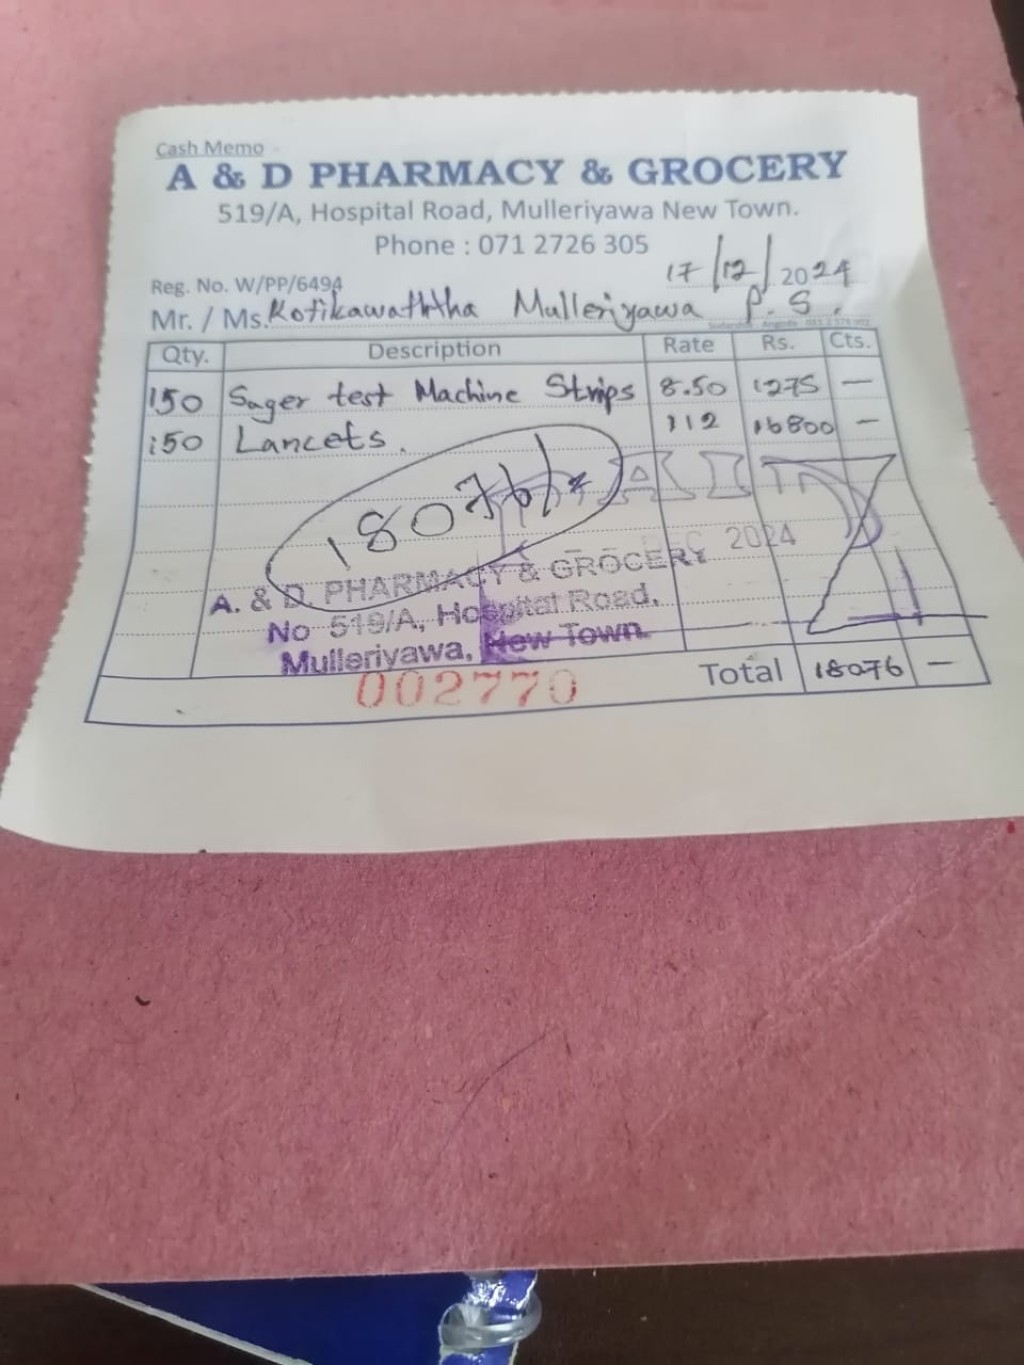 Cash Memo
A & D PHARMACY & GROCERY
519/A, Hospital Road, Mulleriyawa New Town.
Phone : 071 2726 305
Reg. No. W/PP/6494
17/12/2024
Mr. / Ms. Kotikawaththa Mulleriyawa P.S.
Qty. Description Rate Rs. Cts.
150 Sager test Machine Strips 8.50 1275 —
150 Lancets. 112 16800 —
18076/=
PAID
DEC 2024
A. & D. PHARMACY & GROCERY
No 519/A, Hospital Road,
Mulleriyawa, New Town.
002770
Total 18076 —